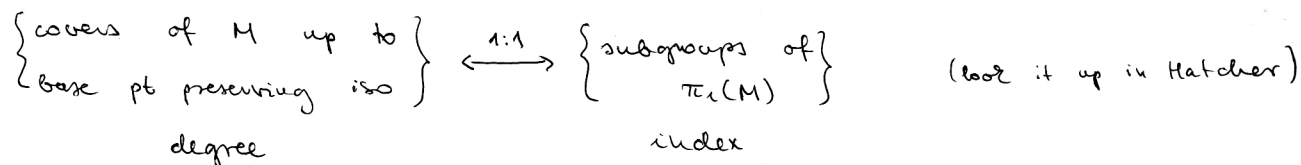 {covers of M up to
base pt preserving iso} 1:1 ⟷ {subgroups of
π₁(M)} (look it up in Hatcher)
degree index